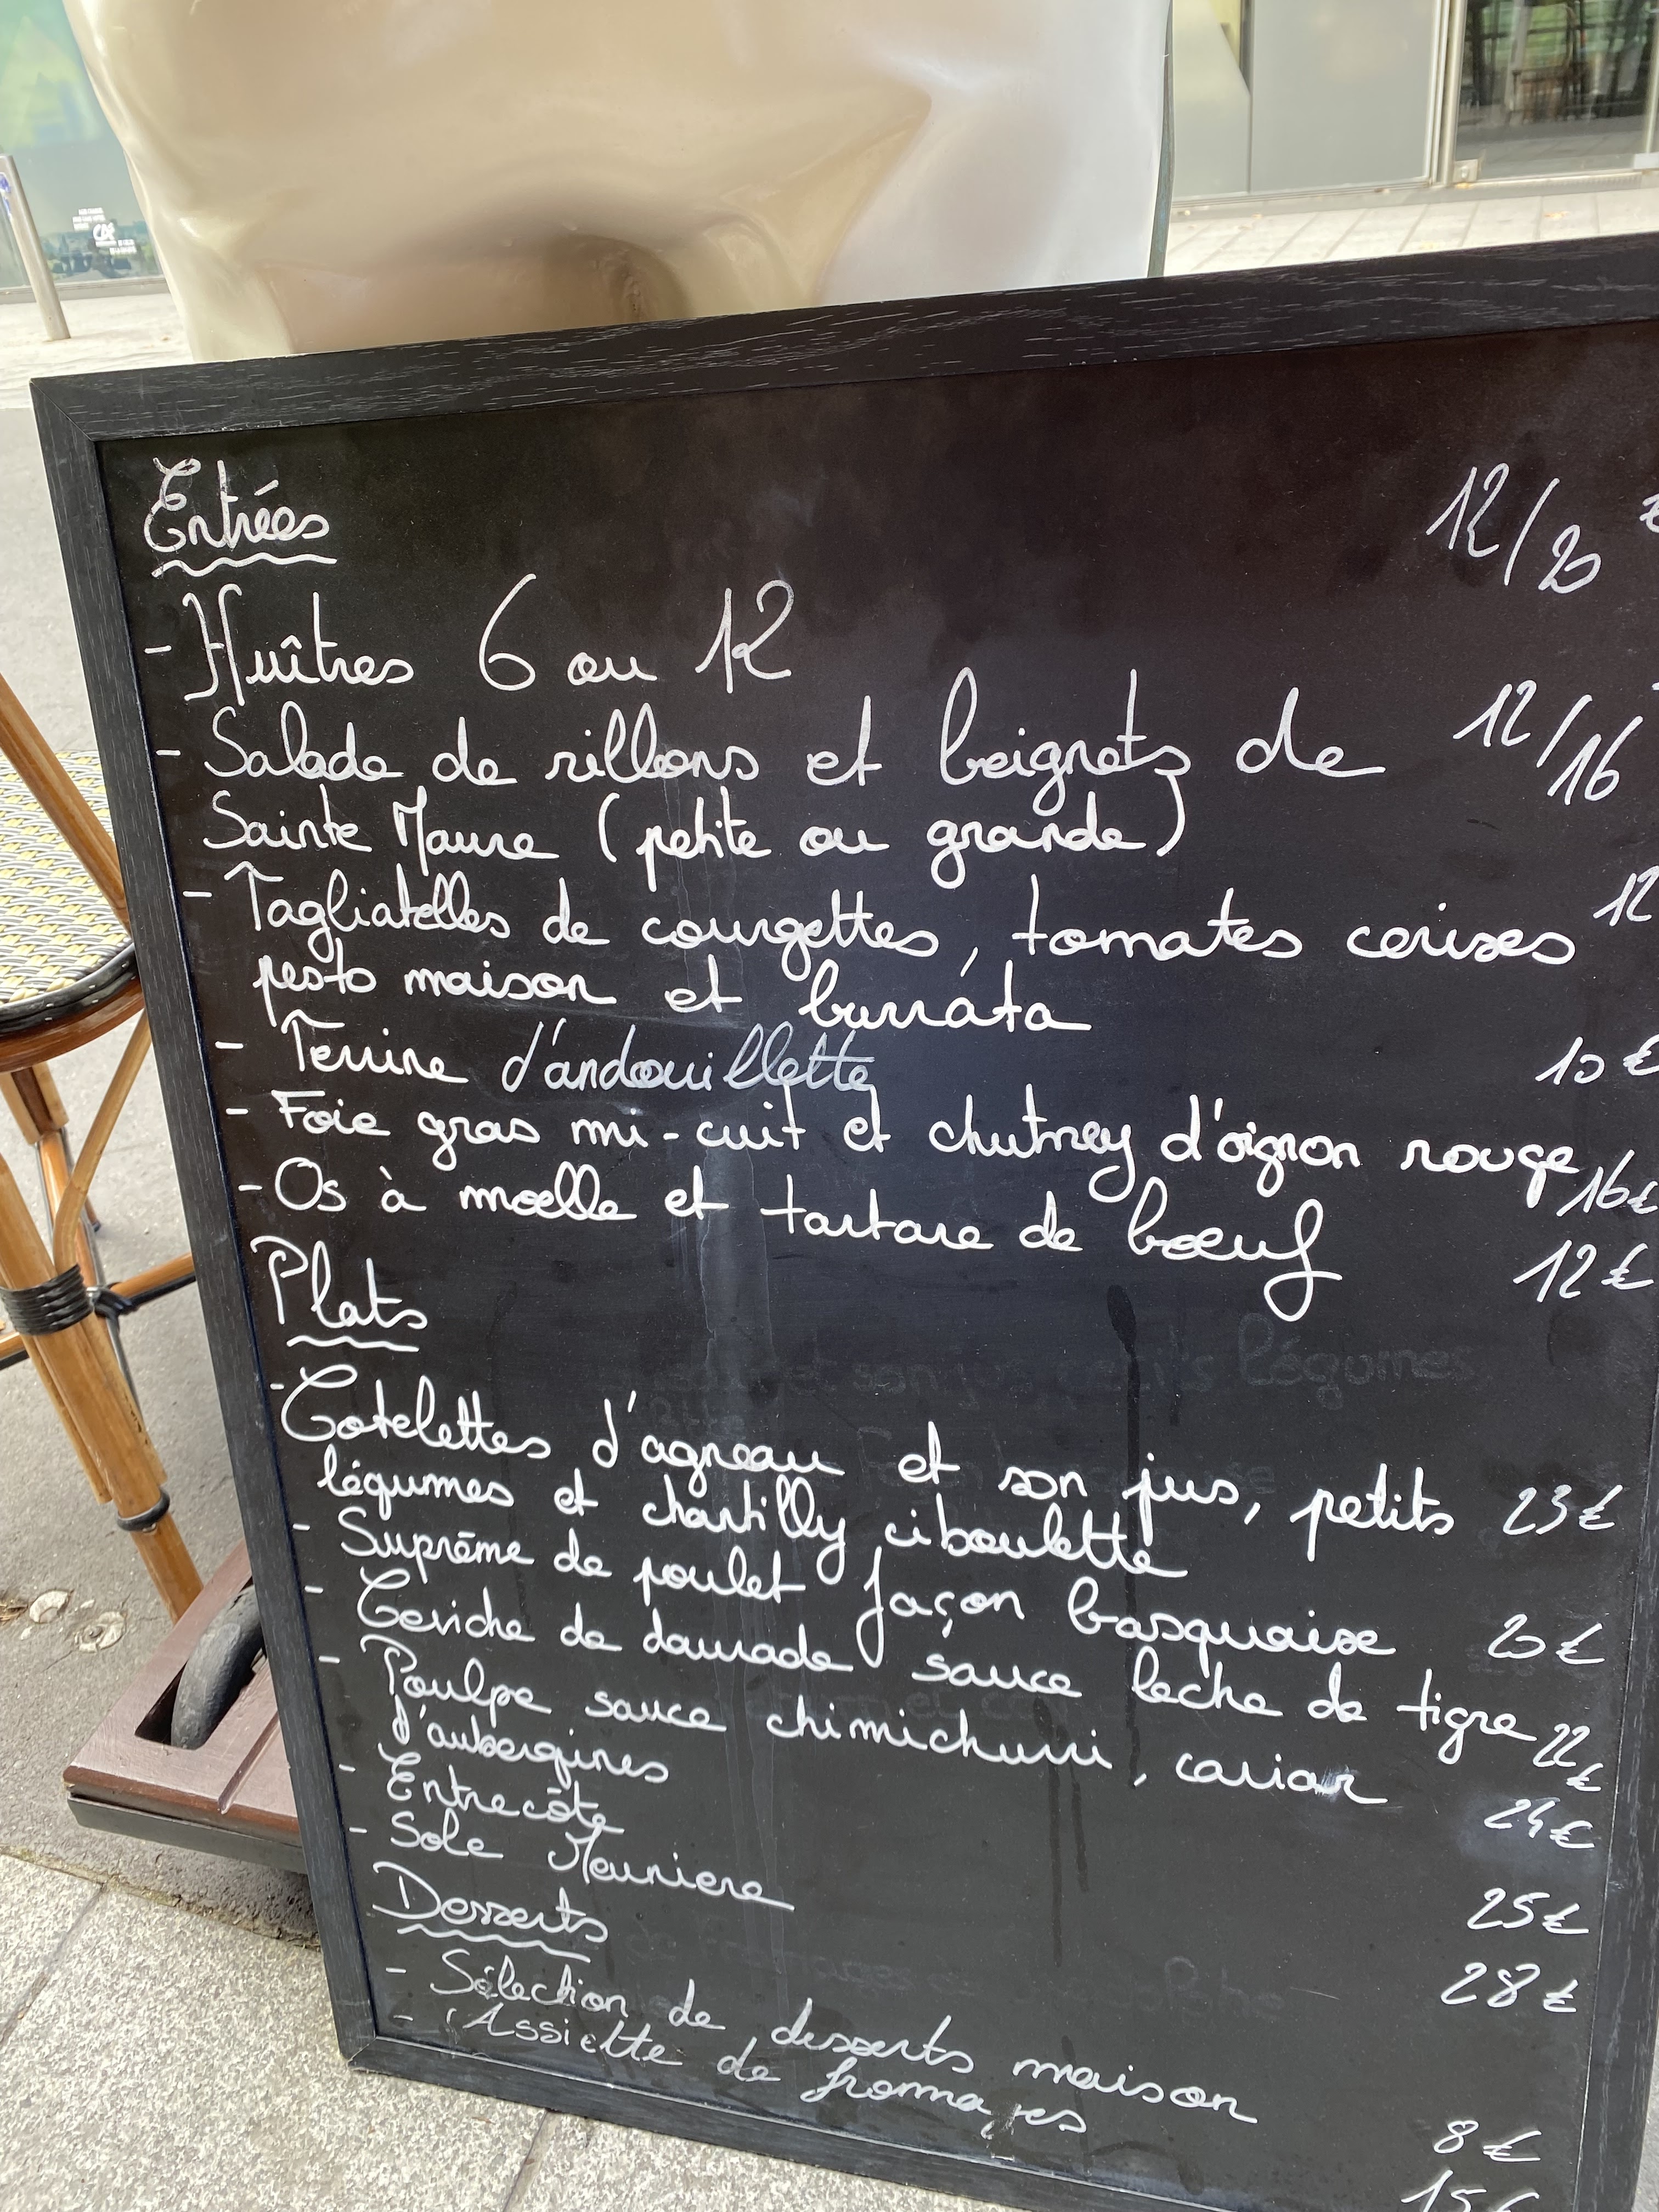 Entrées
- Huîtres 6 ou 12 12/20
- Salade de rillons et beignets de 12/16
Sainte Maure (petite ou grande)
- Tagliatelles de courgettes, tomates cerises 12
pesto maison et burráta
- Terrine d'andouillette 10 €
- Foie gras mi-cuit et chutney d'oignon rouge 16€
- Os à moelle et tartare de bœuf 12 €
Plats
- Cotelettes d'agneau et son jus, petits 23 €
légumes et chantilly ciboulette
- Suprême de poulet façon basquaise 20 €
- Ceviche de daurade sauce leche de tigre 22 €
- Poulpe sauce chimichurri, caviar 24 €
d'aubergines
- Entrecôte 25 €
- Sole Meuniere 28 €
Desserts
- Sélection de desserts maison 8 €
- Assiette de fromages 15 €